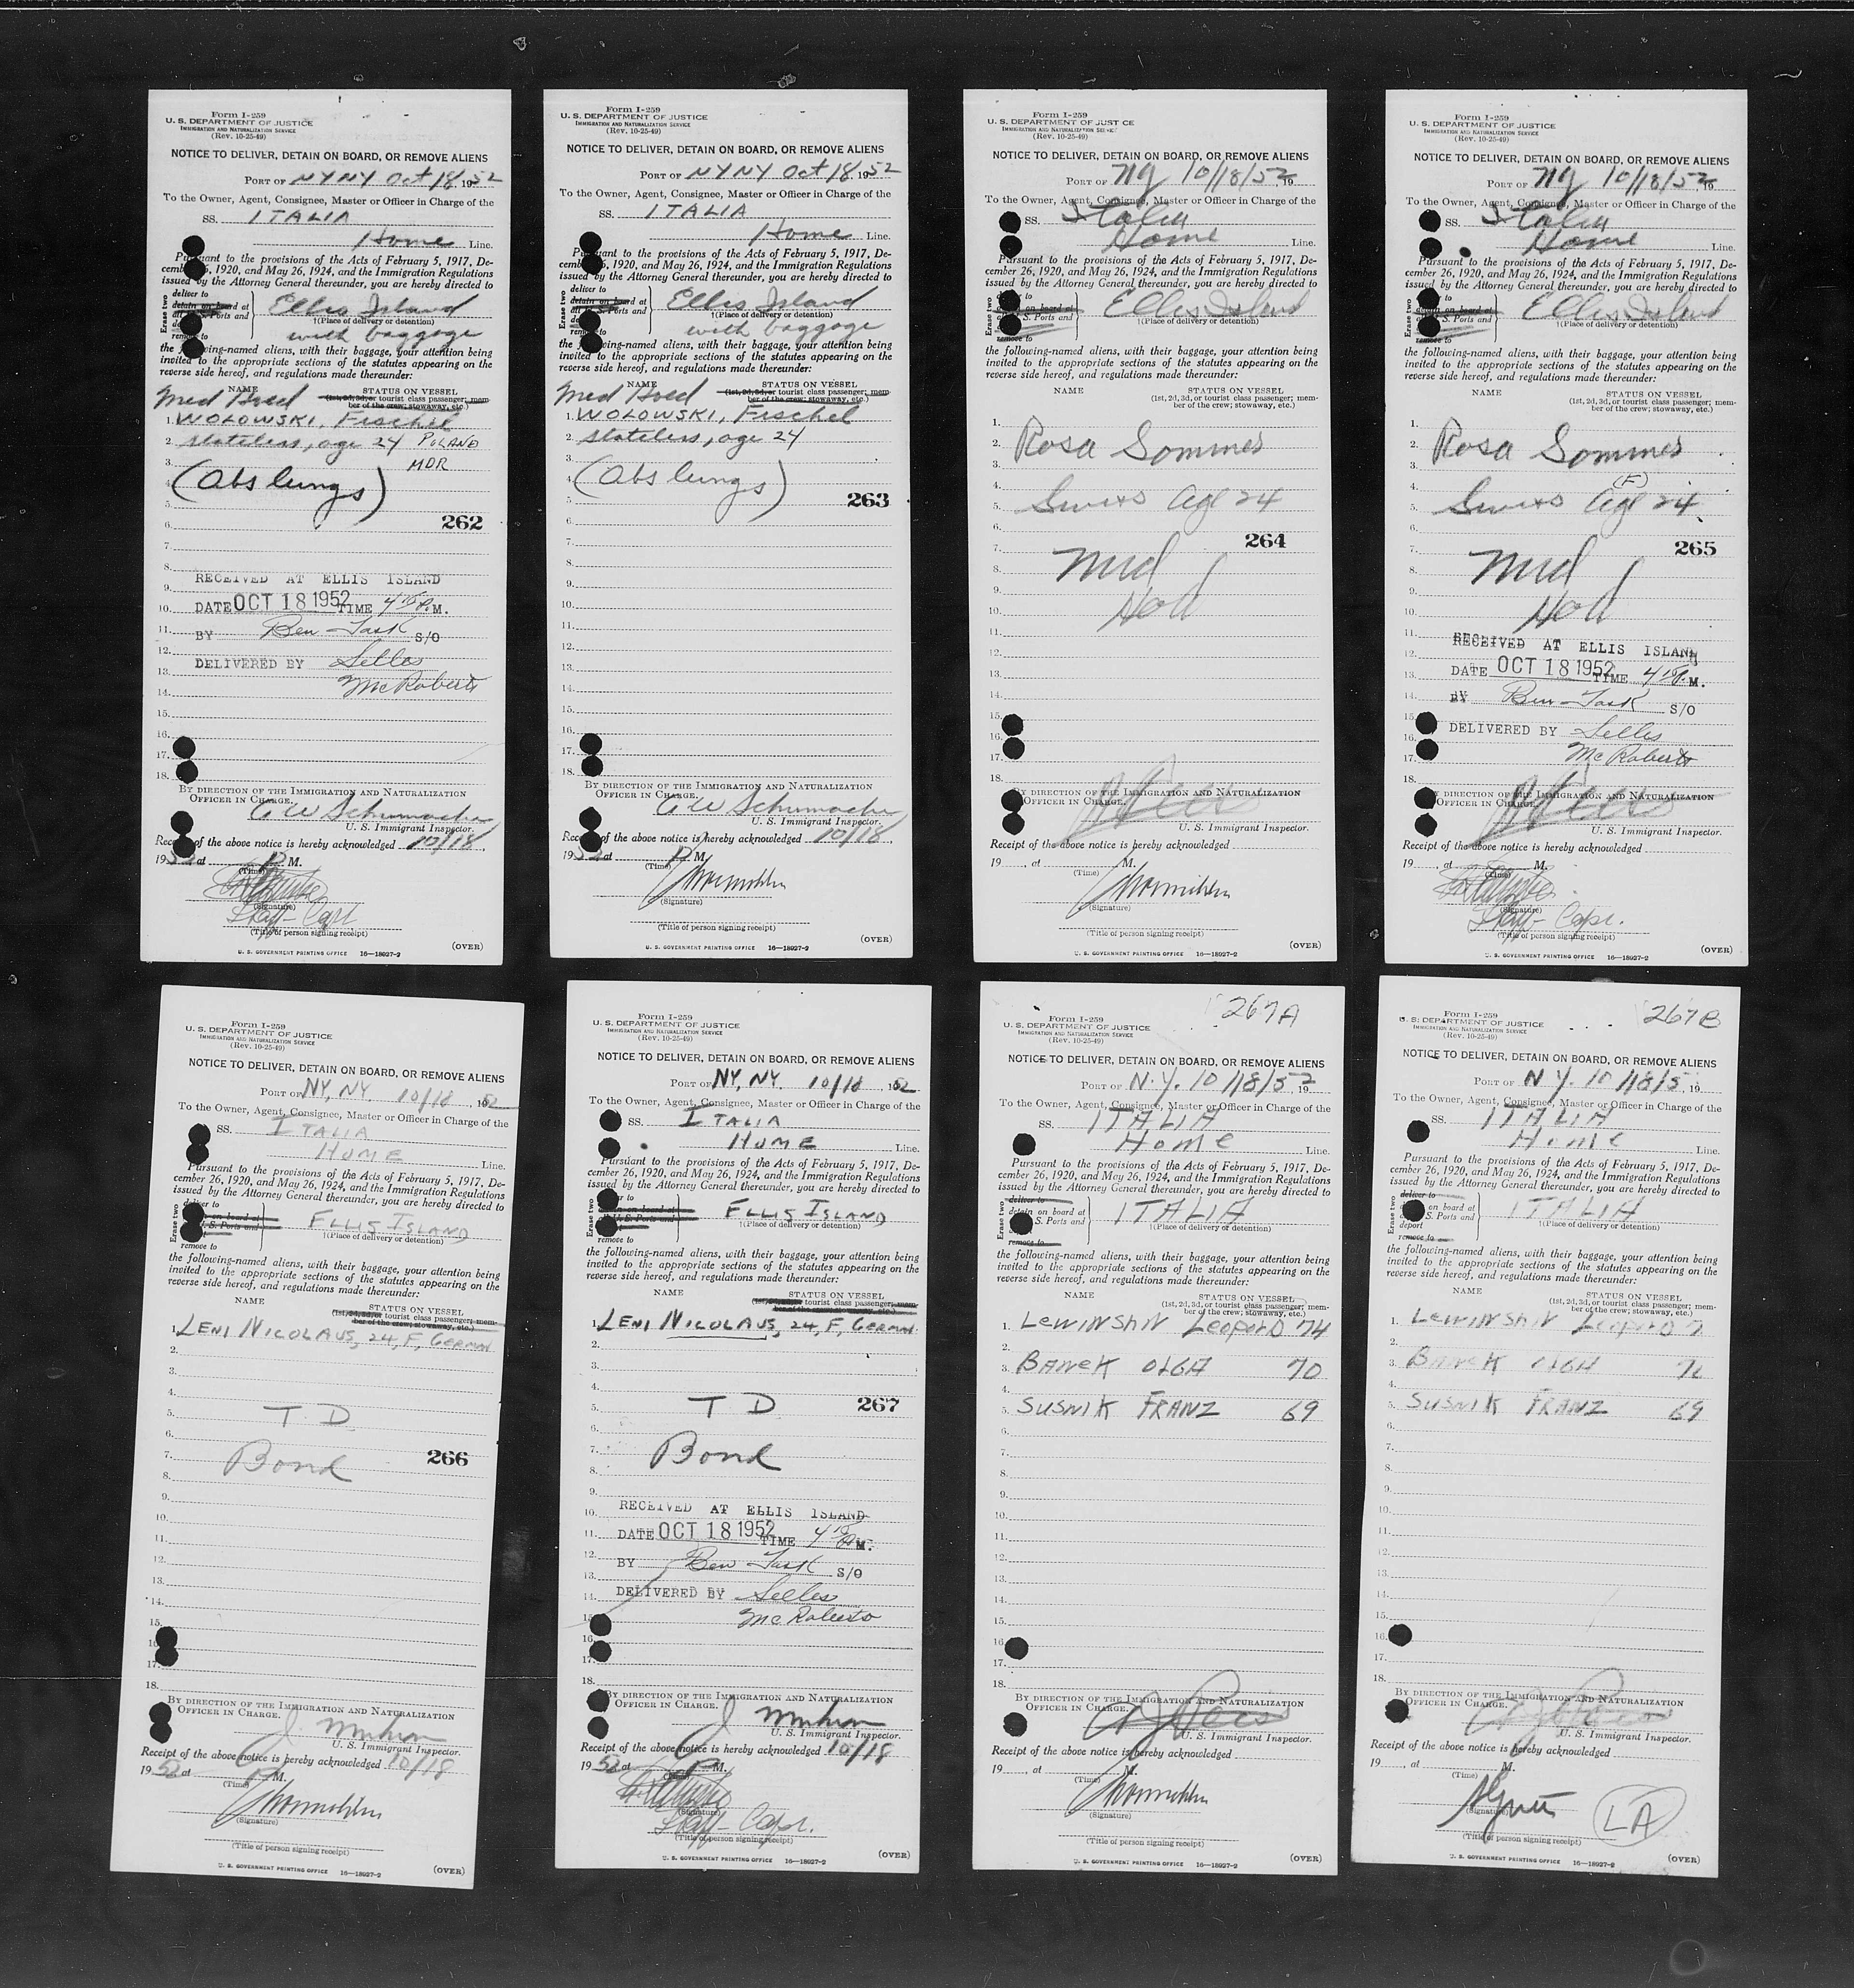 Form I-259
U. S. DEPARTMENT OF JUSTICE
IMMIGRATION AND NATURALIZATION SERVICE
(Rev. 10-25-49)
NOTICE TO DELIVER, DETAIN ON BOARD, OR REMOVE ALIENS
PORT OF NYNY Oct 18 1952
To the Owner, Agent, Consignee, Master or Officer in Charge of the
SS. ITALIA
Home Line.
Pursuant to the provisions of the Acts of February 5, 1917, De-
cember 26, 1920, and May 26, 1924, and the Immigration Regulations
issued by the Attorney General thereunder, you are hereby directed to
Erase two
deliver to
detain on board at
S. Ports and
remove to
Ellis Island
†(Place of delivery or detention)
with baggage
the following-named aliens, with their baggage, your attention being
invited to the appropriate sections of the statutes appearing on the
reverse side hereof, and regulations made thereunder:
NAME STATUS ON VESSEL
(1st, 2d, 3d, or tourist class passenger; mem-
ber of the crew; stowaway, etc.)
Med
1. WOLOWSKI, Fischel
2. stateless, age 24 POLAND
3. MDR
4. (Abs lungs)
5.
6. 262
7.
8. RECEIVED AT ELLIS ISLAND
9.
10. DATE OCT 18 1952 TIME 4 15 P.M.
11. BY Ben Task S/O
12.
13. DELIVERED BY Selles
14. McRoberts
15.
16.
17.
18.
BY DIRECTION OF THE IMMIGRATION AND NATURALIZATION
OFFICER IN CHARGE.
C W Schumacher
U. S. Immigrant Inspector.
Receipt of the above notice is hereby acknowledged 10/18
1952 at P M.
(Time)
(Signature)
Staff-Capt
(Title of person signing receipt)
(OVER)
U. S. GOVERNMENT PRINTING OFFICE 16—18927-2
Form I-259
U. S. DEPARTMENT OF JUSTICE
IMMIGRATION AND NATURALIZATION SERVICE
(Rev. 10-25-49)
NOTICE TO DELIVER, DETAIN ON BOARD, OR REMOVE ALIENS
PORT OF NYNY Oct 18 1952
To the Owner, Agent, Consignee, Master or Officer in Charge of the
SS. ITALIA
Home Line.
Pursuant to the provisions of the Acts of February 5, 1917, De-
cember 26, 1920, and May 26, 1924, and the Immigration Regulations
issued by the Attorney General thereunder, you are hereby directed to
Erase two
deliver to
detain on board at
S. Ports and
remove to
Ellis Island
†(Place of delivery or detention)
with baggage
the following-named aliens, with their baggage, your attention being
invited to the appropriate sections of the statutes appearing on the
reverse side hereof, and regulations made thereunder:
NAME STATUS ON VESSEL
(1st, 2d, 3d, or tourist class passenger; mem-
ber of the crew; stowaway, etc.)
Med
1. WOLOWSKI, Fischel
2. stateless, age 24
3.
4. (Abs lungs)
5. 263
6.
7.
8.
9.
10.
11.
12.
13.
14.
15.
16.
17.
18.
BY DIRECTION OF THE IMMIGRATION AND NATURALIZATION
OFFICER IN CHARGE.
C W Schumacher
U. S. Immigrant Inspector.
Receipt of the above notice is hereby acknowledged 10/18
1952 at P M.
(Time)
(Signature)
(Title of person signing receipt)
(OVER)
U. S. GOVERNMENT PRINTING OFFICE 16—18927-2
Form I-259
U. S. DEPARTMENT OF JUSTICE
IMMIGRATION AND NATURALIZATION SERVICE
(Rev. 10-25-49)
NOTICE TO DELIVER, DETAIN ON BOARD, OR REMOVE ALIENS
PORT OF NY 10/18/52 19
To the Owner, Agent, Consignee, Master or Officer in Charge of the
SS. Italia
Home Line.
Pursuant to the provisions of the Acts of February 5, 1917, De-
cember 26, 1920, and May 26, 1924, and the Immigration Regulations
issued by the Attorney General thereunder, you are hereby directed to
Erase two
on board at
S. Ports and
remove to
Ellis Island
†(Place of delivery or detention)
the following-named aliens, with their baggage, your attention being
invited to the appropriate sections of the statutes appearing on the
reverse side hereof, and regulations made thereunder:
NAME STATUS ON VESSEL
(1st, 2d, 3d, or tourist class passenger; mem-
ber of the crew; stowaway, etc.)
1.
2. Rosa Sommer
3.
4.
5. Swiss Age 24
6.
7. 264
8. Med
9.
10. Hod
11.
12.
13.
14.
15.
16.
17.
18.
BY DIRECTION OF THE IMMIGRATION AND NATURALIZATION
OFFICER IN CHARGE.
U. S. Immigrant Inspector.
Receipt of the above notice is hereby acknowledged
19 , at M.
(Time)
(Signature)
(Title of person signing receipt)
(OVER)
U. S. GOVERNMENT PRINTING OFFICE 16—18927-2
Form I-259
U. S. DEPARTMENT OF JUSTICE
IMMIGRATION AND NATURALIZATION SERVICE
(Rev. 10-25-49)
NOTICE TO DELIVER, DETAIN ON BOARD, OR REMOVE ALIENS
PORT OF NY 10/18/52 19
To the Owner, Agent, Consignee, Master or Officer in Charge of the
SS. Italia
Home Line.
Pursuant to the provisions of the Acts of February 5, 1917, De-
cember 26, 1920, and May 26, 1924, and the Immigration Regulations
issued by the Attorney General thereunder, you are hereby directed to
Erase two
detain on board at
S. Ports and
remove to
Ellis Island
†(Place of delivery or detention)
the following-named aliens, with their baggage, your attention being
invited to the appropriate sections of the statutes appearing on the
reverse side hereof, and regulations made thereunder:
NAME STATUS ON VESSEL
(1st, 2d, 3d, or tourist class passenger; mem-
ber of the crew; stowaway, etc.)
1.
2. Rosa Sommer
3.
4. (F)
5. Swiss Age 24
6.
7. 265
8. Med
9.
10. Hod
11. RECEIVED AT ELLIS ISLAND
12.
13. DATE OCT 18 1952 TIME 4 15 P.M.
14. BY Ben Task S/O
15.
16. DELIVERED BY Selles
17. McRoberts
18.
BY DIRECTION OF THE IMMIGRATION AND NATURALIZATION
OFFICER IN CHARGE.
U. S. Immigrant Inspector.
Receipt of the above notice is hereby acknowledged
19 , at M.
(Time)
(Signature)
Staff-Capt.
(Title of person signing receipt)
(OVER)
U. S. GOVERNMENT PRINTING OFFICE 16—18927-2
Form I-259
U. S. DEPARTMENT OF JUSTICE
IMMIGRATION AND NATURALIZATION SERVICE
(Rev. 10-25-49)
NOTICE TO DELIVER, DETAIN ON BOARD, OR REMOVE ALIENS
PORT OF NY, NY. 10/18, 1952
To the Owner, Agent, Consignee, Master or Officer in Charge of the
SS. ITALIA
HOME Line.
Pursuant to the provisions of the Acts of February 5, 1917, De-
cember 26, 1920, and May 26, 1924, and the Immigration Regulations
issued by the Attorney General thereunder, you are hereby directed to
Erase two
deliver to
on board at
U. S. Ports and
remove to
ELLIS ISLAND
†(Place of delivery or detention)
the following-named aliens, with their baggage, your attention being
invited to the appropriate sections of the statutes appearing on the
reverse side hereof, and regulations made thereunder:
NAME STATUS ON VESSEL
(1st, 2d, 3d, or tourist class passenger; mem-
ber of the crew; stowaway, etc.)
1. LENI NICOLAUS, 24, F, GERMAN
2.
3.
4.
5. T. D.
6.
7. Bond 266
8.
9.
10.
11.
12.
13.
14.
15.
16.
17.
18.
BY DIRECTION OF THE IMMIGRATION AND NATURALIZATION
OFFICER IN CHARGE.
U. S. Immigrant Inspector.
Receipt of the above notice is hereby acknowledged 10/18
1952 at P M.
(Time)
(Signature)
(Title of person signing receipt)
(OVER)
U. S. GOVERNMENT PRINTING OFFICE 16—18927-2
Form I-259
U. S. DEPARTMENT OF JUSTICE
IMMIGRATION AND NATURALIZATION SERVICE
(Rev. 10-25-49)
NOTICE TO DELIVER, DETAIN ON BOARD, OR REMOVE ALIENS
PORT OF NY, NY. 10/18, 1952
To the Owner, Agent, Consignee, Master or Officer in Charge of the
SS. ITALIA
HOME Line.
Pursuant to the provisions of the Acts of February 5, 1917, De-
cember 26, 1920, and May 26, 1924, and the Immigration Regulations
issued by the Attorney General thereunder, you are hereby directed to
Erase two
to
on board at
U. S. Ports and
remove to
ELLIS ISLAND
†(Place of delivery or detention)
the following-named aliens, with their baggage, your attention being
invited to the appropriate sections of the statutes appearing on the
reverse side hereof, and regulations made thereunder:
NAME STATUS ON VESSEL
tourist class passenger; mem-
ber of the crew; stowaway, etc.)
1. LENI NICOLAUS, 24, F, GERMAN
2.
3.
4.
5. T D 267
6.
7. Bond
8.
9.
10. RECEIVED AT ELLIS ISLAND
11. DATE OCT 18 1952 TIME 4 15 P.M.
12. BY Ben Task S/O
13.
14. DELIVERED BY Selles
15. McRoberts
16.
17.
18.
BY DIRECTION OF THE IMMIGRATION AND NATURALIZATION
OFFICER IN CHARGE.
U. S. Immigrant Inspector.
Receipt of the above notice is hereby acknowledged 10/18
1952 at P M.
(Time)
(Signature)
Staff-Capt.
(Title of person signing receipt)
(OVER)
U. S. GOVERNMENT PRINTING OFFICE 16—18927-2
267A
Form I-259
U. S. DEPARTMENT OF JUSTICE
IMMIGRATION AND NATURALIZATION SERVICE
(Rev. 10-25-49)
NOTICE TO DELIVER, DETAIN ON BOARD, OR REMOVE ALIENS
PORT OF N.Y. 10/18/52 19
To the Owner, Agent, Consignee, Master or Officer in Charge of the
SS. ITALIA
Home Line.
Pursuant to the provisions of the Acts of February 5, 1917, De-
cember 26, 1920, and May 26, 1924, and the Immigration Regulations
issued by the Attorney General thereunder, you are hereby directed to
Erase two
deliver to
detain on board at
S. Ports and
remove to
ITALIA
†(Place of delivery or detention)
the following-named aliens, with their baggage, your attention being
invited to the appropriate sections of the statutes appearing on the
reverse side hereof, and regulations made thereunder:
NAME STATUS ON VESSEL
(1st, 2d, 3d, or tourist class passenger; mem-
ber of the crew; stowaway, etc.)
1. LEWINSHIN LEOPOLD 74
2.
3. BANEK OLGA 70
4.
5. SUSNIK FRANZ 69
6.
7.
8.
9.
10.
11.
12.
13.
14.
15.
16.
17.
18.
BY DIRECTION OF THE IMMIGRATION AND NATURALIZATION
OFFICER IN CHARGE.
U. S. Immigrant Inspector.
Receipt of the above notice is hereby acknowledged
19 , at M.
(Time)
(Signature)
(Title of person signing receipt)
(OVER)
U. S. GOVERNMENT PRINTING OFFICE 16—18927-2
267B
Form I-259
U. S. DEPARTMENT OF JUSTICE
IMMIGRATION AND NATURALIZATION SERVICE
(Rev. 10-25-49)
NOTICE TO DELIVER, DETAIN ON BOARD, OR REMOVE ALIENS
PORT OF N.Y. 10/18/5 19
To the Owner, Agent, Consignee, Master or Officer in Charge of the
SS. ITALIA
Home Line.
Pursuant to the provisions of the Acts of February 5, 1917, De-
cember 26, 1920, and May 26, 1924, and the Immigration Regulations
issued by the Attorney General thereunder, you are hereby directed to
Erase two
deliver to
on board at
S. Ports and
deport
remove to
ITALIA
†(Place of delivery or detention)
the following-named aliens, with their baggage, your attention being
invited to the appropriate sections of the statutes appearing on the
reverse side hereof, and regulations made thereunder:
NAME STATUS ON VESSEL
(1st, 2d, 3d, or tourist class passenger; mem-
ber of the crew; stowaway, etc.)
1. LEWINSHIN LEOPOLD 7
2.
3. BANEK OLGA 70
4.
5. SUSNIK FRANZ 69
6.
7.
8.
9.
10.
11.
12.
13.
14.
15.
16.
17.
18.
BY DIRECTION OF THE IMMIGRATION AND NATURALIZATION
OFFICER IN CHARGE.
U. S. Immigrant Inspector.
Receipt of the above notice is hereby acknowledged
19 , at M.
(Time)
(Signature)
LA
(Title of person signing receipt)
(OVER)
U. S. GOVERNMENT PRINTING OFFICE 16—18927-2